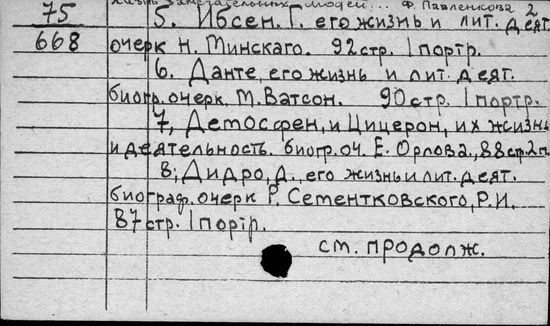 75 жизнь замечательных людей... Ф. Павленкова 2
5. Ибсен. Г. его жизнь и лит. деят.
668 очерк Н. Минскаго. 92 стр. 1 портр.
6. Данте, его жизнь и лит. деят.
биогр. очерк М. Ватсон. 90 стр. 1 портр.
7, Демосфен, и Цицерон, их жизнь
и деятельность. биогр. оч. Е. Орлова., 88 стр. 2 п.
8; Дидро, Д., его жизнь и лит. деят.
биограф. очерк Р. Сементковского, Р. И.
87 стр. 1 портр.
см. продолж.